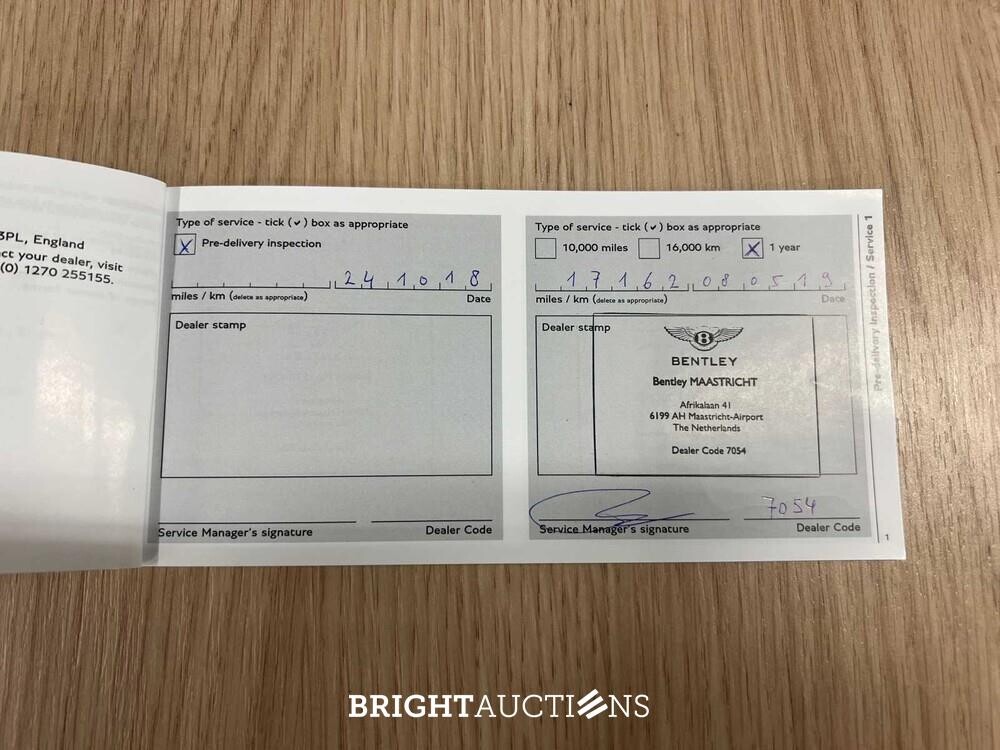 3PL, England
ct your dealer, visit
(0) 1270 255155.
Type of service - tick (✓) box as appropriate
X Pre-delivery inspection
241018
miles / km (delete as appropriate) Date
Dealer stamp
Service Manager's signature Dealer Code
Type of service - tick (✓) box as appropriate
10,000 miles 16,000 km X 1 year
17162 080519
miles / km (delete as appropriate) Date
Dealer stamp
B
BENTLEY
Bentley MAASTRICHT
Afrikalaan 41
6199 AH Maastricht-Airport
The Netherlands
Dealer Code 7054
7054
Service Manager's signature Dealer Code
Pre-delivery Inspection / Service 1
1
BRIGHTAUCTIONS